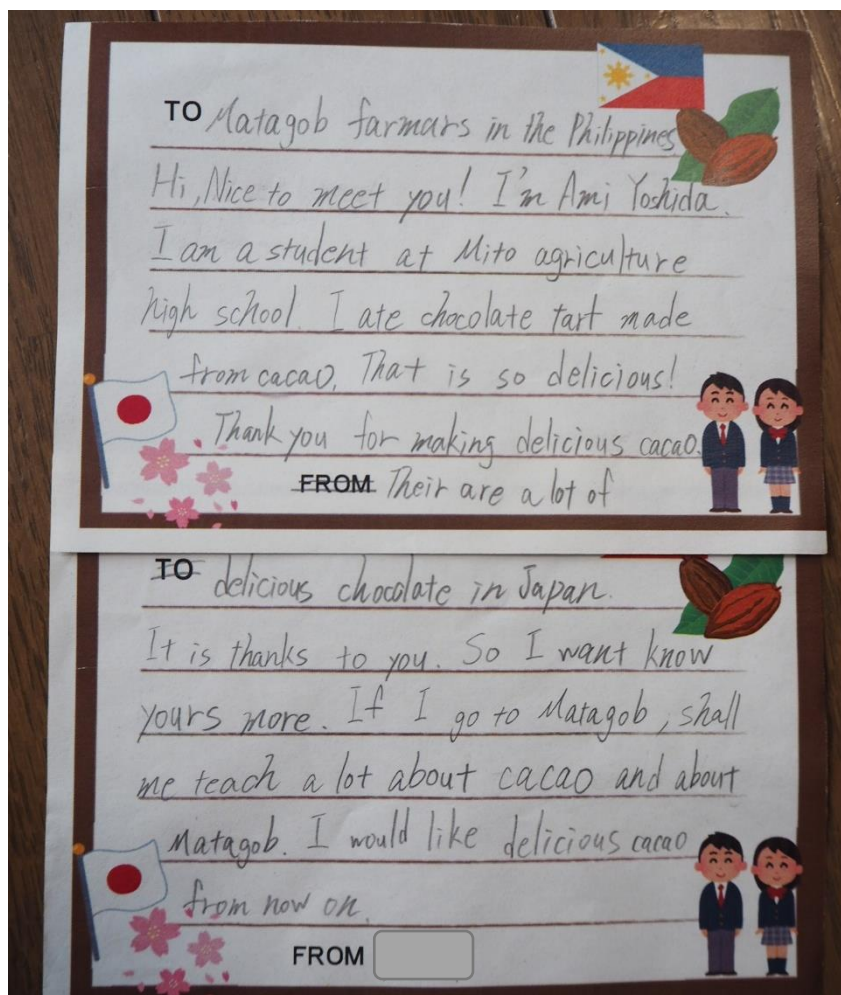 TO Matagob farmars in the Philippines
Hi, Nice to meet you! I'm Ami Yoshida.
I am a student at Mito agriculture
high school. I ate chocolate tart made
from cacao. That is so delicious!
Thank you for making delicious cacao.
FROM Their are a lot of
TO delicious chocolate in Japan.
It is thanks to you. So I want know
yours more. If I go to Matagob, shall
me teach a lot about cacao and about
Matagob. I would like delicious cacao
from now on.
FROM